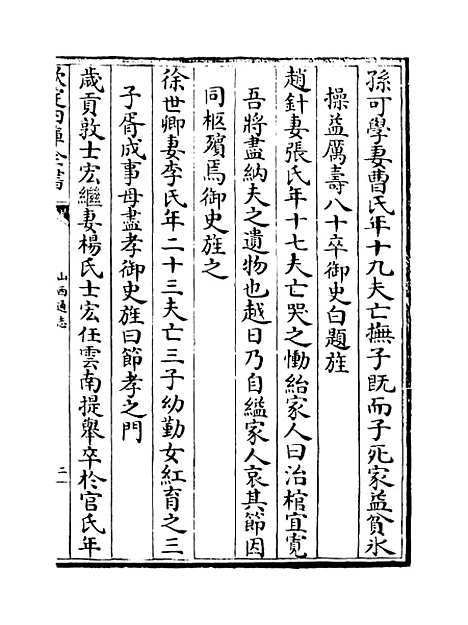 孫可學妻曹氏年十九夫亡撫子既而子死家益貧氷
操益厲壽八十卒御史白題旌
趙針妻張氏年十七夫亡哭之慟紿家人曰治棺宜寛
吾將盡納夫之遺物也越日乃自縊家人哀其節因
同柩殯焉御史旌之
徐世卿妻李氏年二十三夫亡三子幼勤女紅育之三
子胥成事母盡孝御史旌曰節孝之門
歲貢敦士宏繼妻楊氏士宏任雲南提舉卒於官氏年
欽定四庫全書
山西通志